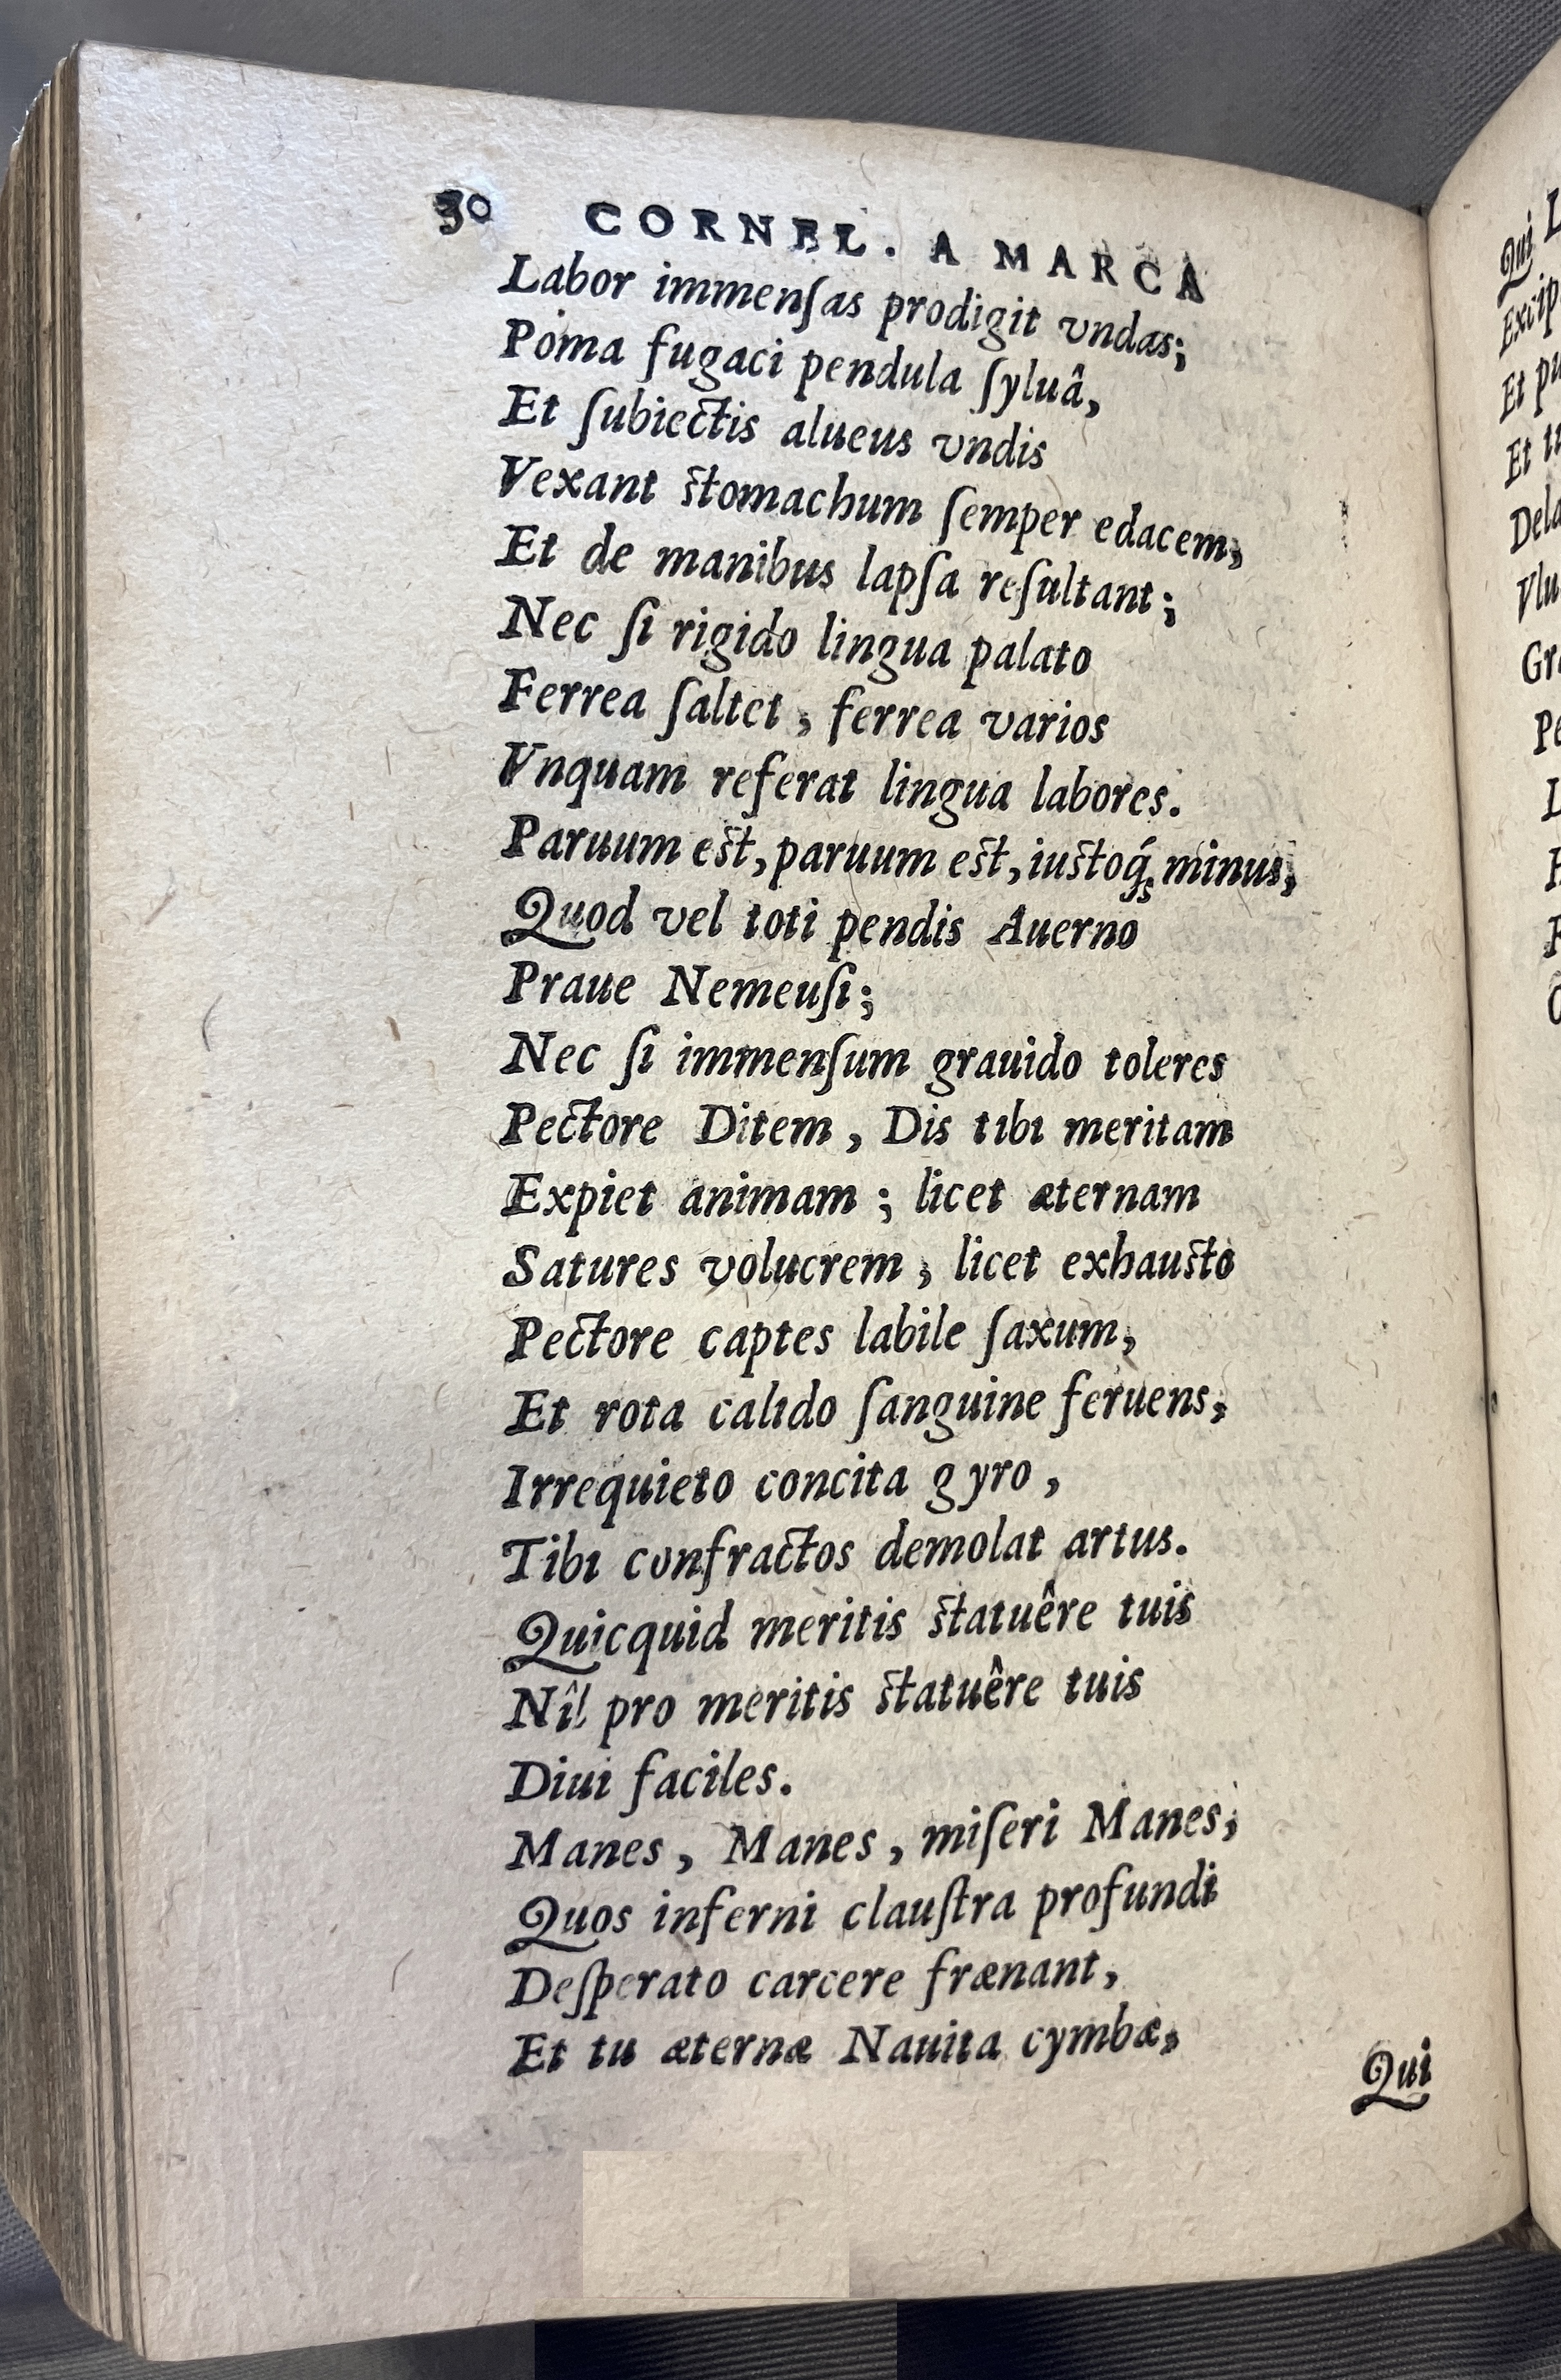 30 CORNEL. A MARCA
Labor immenſas prodigit vndas;
Poma fugaci pendula ſyluâ,
Et ſubiectis alueus vndis
Vexant ſtomachum ſemper edacem,
Et de manibus lapſa reſultant;
Nec ſi rigido lingua palato
Ferrea ſaltet, ferrea varios
Vnquam referat lingua labores.
Paruum eſt, paruum eſt, iuſtoq́; minus,
Quod vel toti pendis Auerno
Praue Nemeuſi;
Nec ſi immenſum grauido toleres
Pectore Ditem, Dis tibi meritam
Expiet animam; licet æternam
Satures volucrem, licet exhauſto
Pectore captes labile ſaxum,
Et rota calido ſanguine feruens,
Irrequieto concita gyro,
Tibi confractos demolat artus.
Quicquid meritis ſtatuêre tuis
Nîl pro meritis ſtatuêre tuis
Diui faciles.
Manes, Manes, miſeri Manes,
Quos inferni clauſtra profundi
Deſperato carcere frænant,
Et tu æternæ Nauita cymbæ,
Qui
Qui
Et
Et